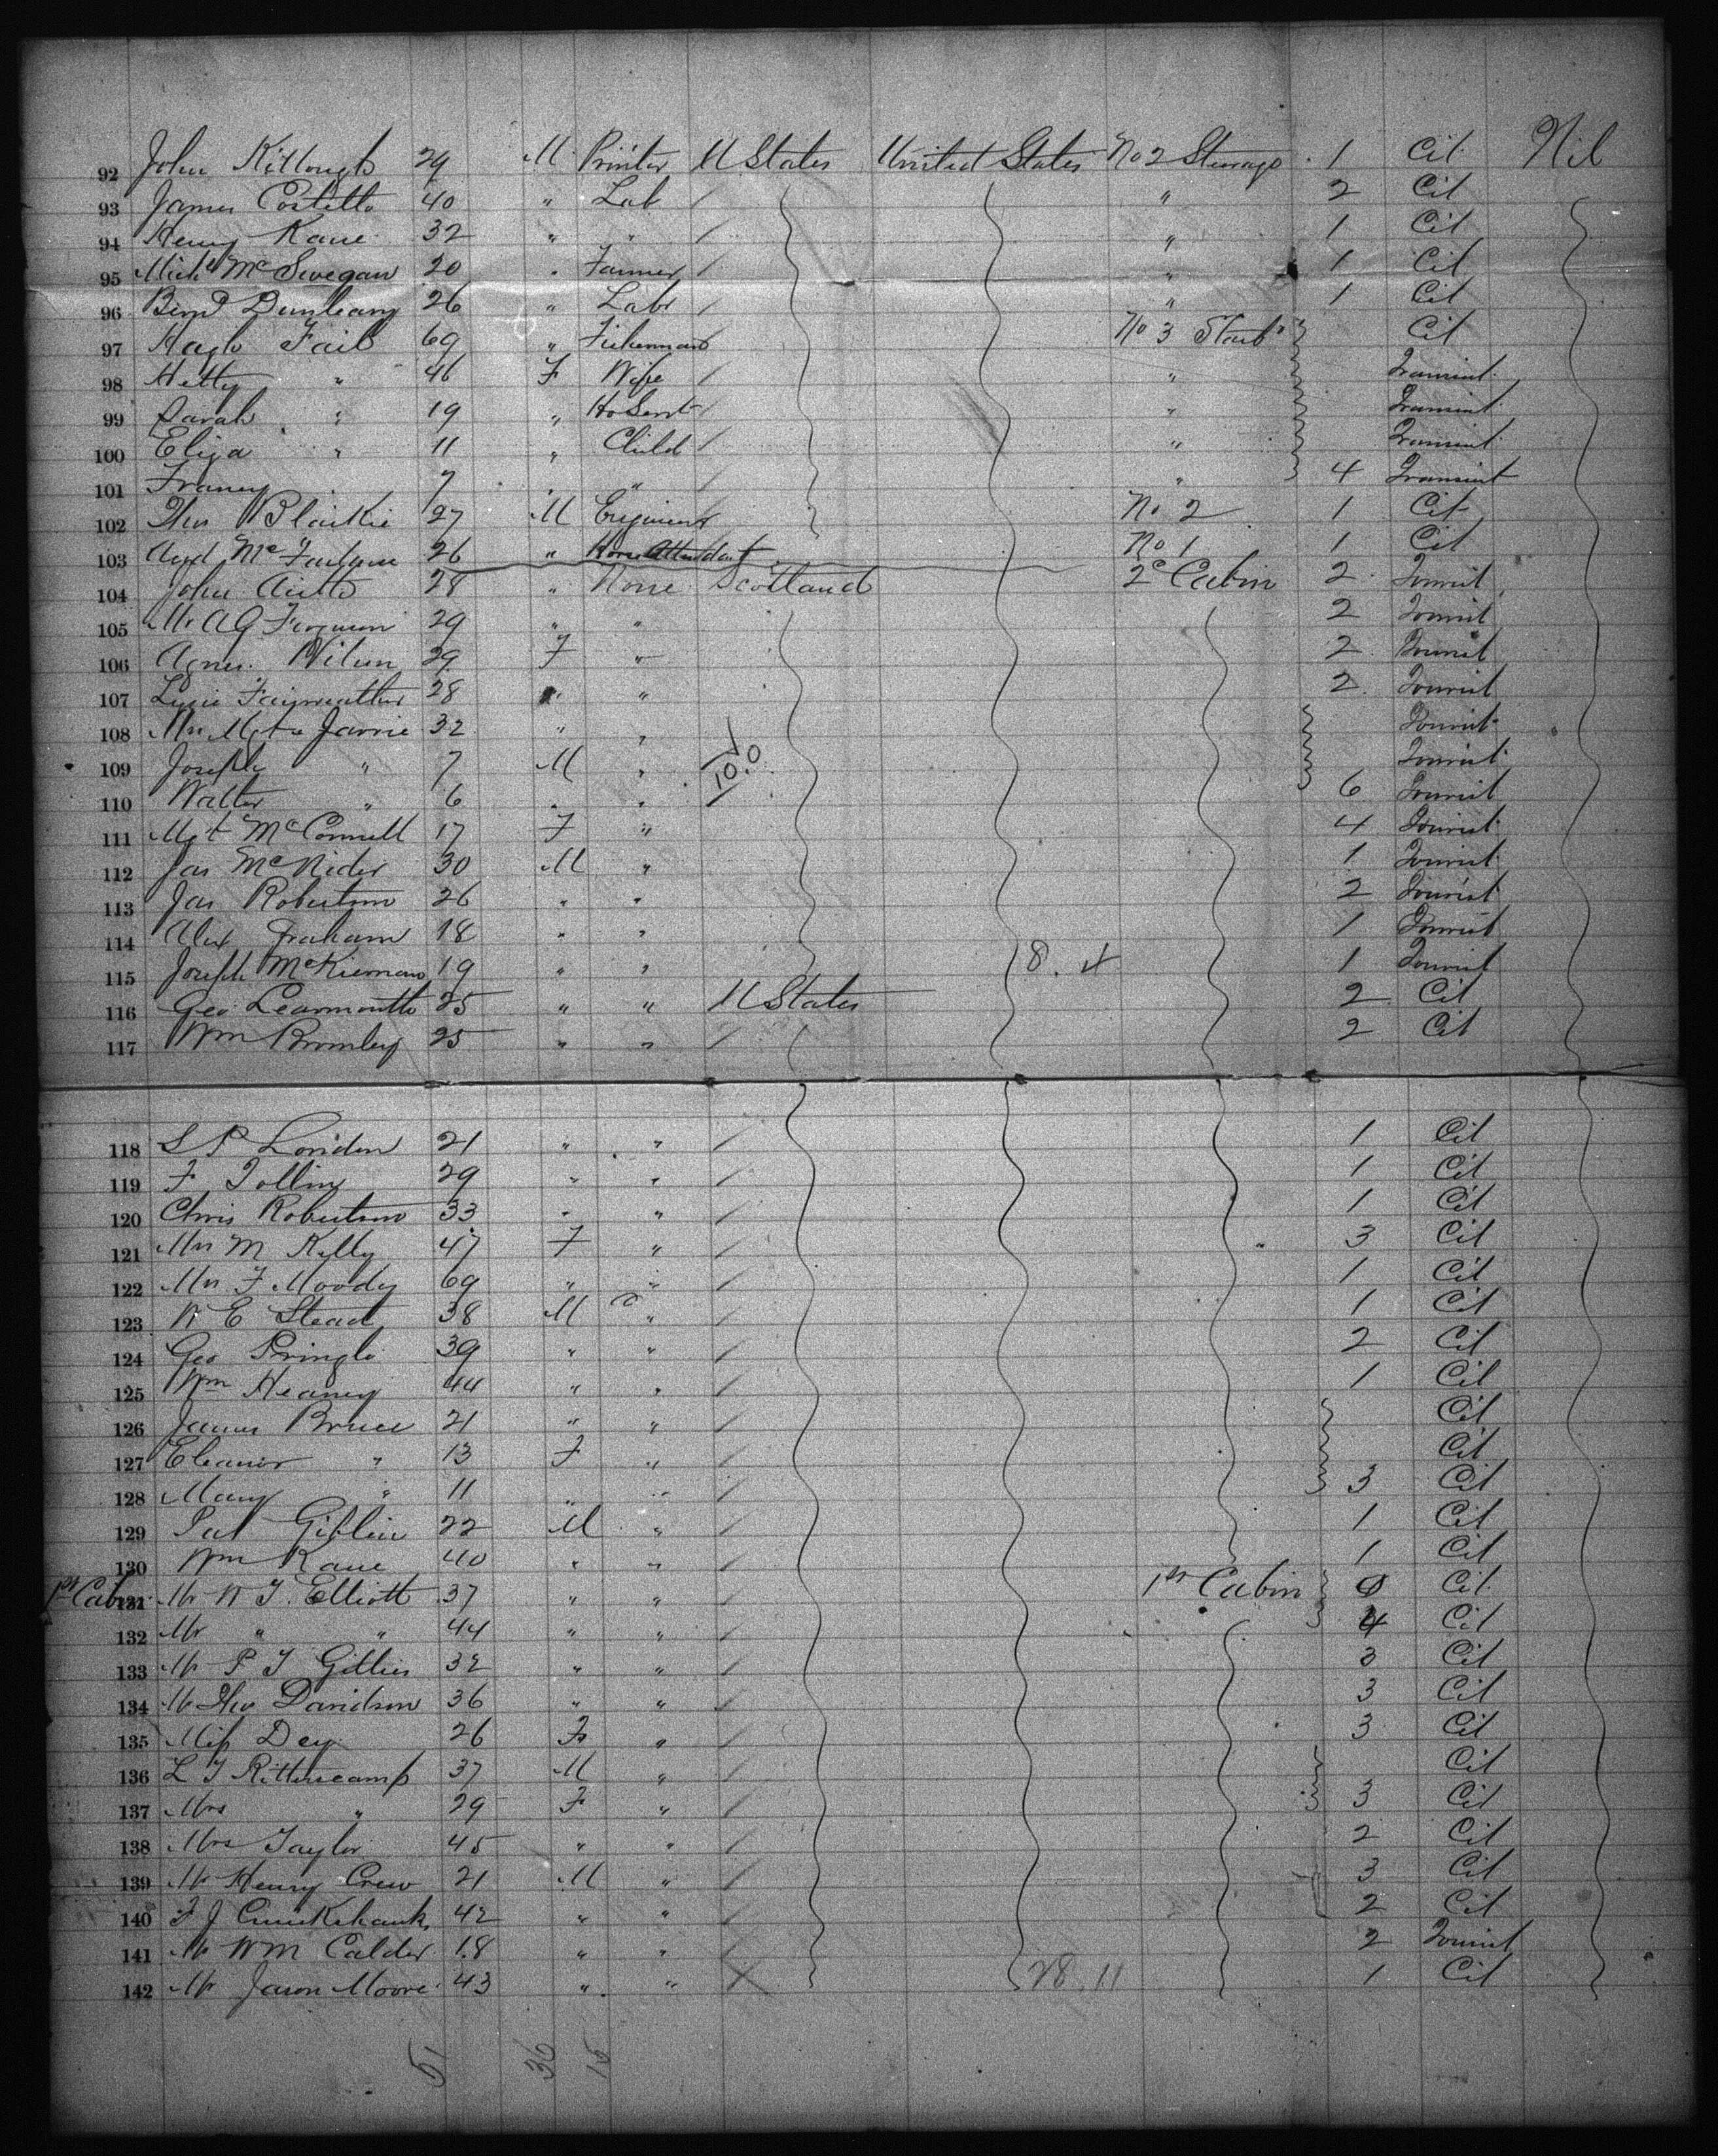 92 John Killough 29 M Printer U States United States No 2 Steerage 1 Cit Nil
93 James Costello 40 " Lab / " 2 Cit
94 Henry Kane 32 " " / " 1 Cit
95 Michl McSwegan 20 " Farmer / " 1 Cit
96 Bernd Dunleavy 26 " Labr / " 1 Cit
97 Hugh Fail 69 " Fisherman No 3 Starb Cit
98 Hetty " 46 F Wife / " Transient
99 Sarah " 19 " Ho Servt / " Transient
100 Eliza " 11 " Child / " Transient
101 7 " " / " 4 Transient
102 Blaikie 27 M Engineer No 2 1 Cit
103 McFarlane 26 " Horse Attendant No 1 1 Cit
104 John 28 " None Scotland 2 Cabin 2 Tourist
105 Mr A G Ferguson 29 " " 2 Tourist
106 Agnes Wilson 29 F " 2 Tourist
107 Fairweather 28 " " 2 Tourist
108 Mrs Mgt Jarvie 32 " " Tourist
109 Joseph " 7 M " 10.0 Tourist
110 Walter " 6 " " 6 Tourist
111 Mgt McConnell 17 F " 4 Tourist
112 Jas McNider 30 M " 1 Tourist
113 Jas Robertson 26 " " 2 Tourist
114 Alex Graham 18 " " 1 Tourist
115 Joseph McKiernan 19 " " 8. 1 Tourist
116 Geo Learmonth 25 " " U States 2 Cit
117 Wm Bromley 25 " " / 2 Cit
118 S P London 21 " " / 1 Cit
119 F 29 " " / 1 Cit
120 Chris Robertson 33 " " / 1 Cit
121 Mrs M Kelly 47 F " / " 3 Cit
122 Mrs F Moody 69 " " / 1 Cit
123 E Stead 38 M " / 1 Cit
124 Geo Pringle 39 " " / 2 Cit
125 Wm Heaney 44 " " / 1 Cit
126 James Bruce 21 " " / Cit
127 Eleanor " 13 F " / Cit
128 Mary " 11 " " / 3 Cit
129 Pat Giblin 22 M " / 1 Cit
130 Wm Kane 40 " " / 1 Cit
1st Cabin 131 Mr Elliott 37 " " / 1st Cabin Cit
132 Mr " " 44 " " / 4 Cit
133 Mr P Gillies 32 " " / 3 Cit
134 Mr Davidson 36 " " / 3 Cit
135 Miss Dey 26 F " / 3 Cit
136 L Ritterscamp 37 M " / Cit
137 Mrs " 29 F " / 3 Cit
138 Mrs Taylor 45 " " / 2 Cit
139 Mr Henry Crew 21 M " / 3 Cit
140 F J Cruickshank 42 " " / 2 Cit
141 Mr Wm Calder 18 " " / 2 Tourist
142 Mr Jason Moore 43 " " 28.11 1 Cit
51 36 15